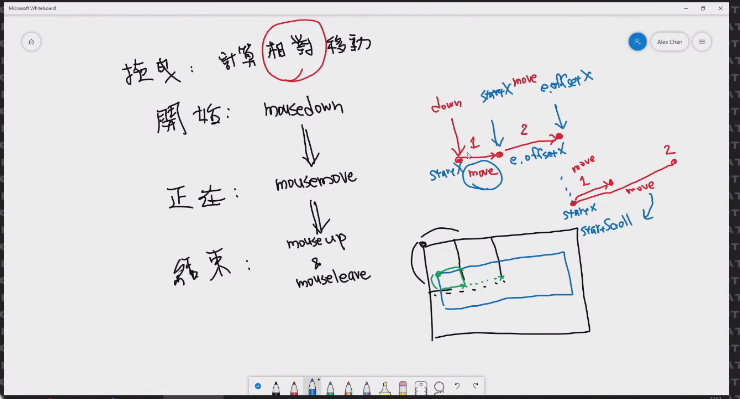 Microsoft Whiteboard
Alex Chen
拖曳: 計算 相對 移動
開始: mousedown
正在: mousemove
結束: mouseup
&
mouseleave
down
startX move e.offsetX
1
2
startX move e.offsetX
move
1
2
move
startX
startScroll